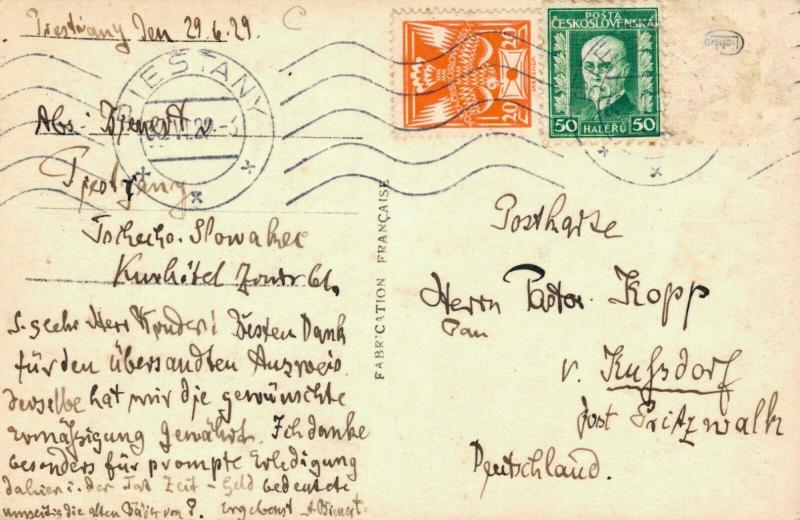 Piestyany den 29.6.29.
PIEŠŤANY
Abs: Bienert v.
Piestyany
Tschecho-Slowakei
Kurhôtel Zentral.
S. geehr. Herr Besten Dank
für den übersandten Ausweis.
Derselbe hat mir die gewünschte
Ermäßigung gewährt. Ich danke
besonders für prompte Erledigung
da hier i. der Tat Zeit - Geld bedeutete
umseitig die alten Bäder von P. Ergebenst A. Bienert
FABRICATION FRANÇAISE
20
ČESKOSLOVENSKÁ
20
POŠTA
ČESKOSLOVENSKÁ
50 HALÉŘŮ 50
Postkarte
Herrn Pastor Kopp
v. Kuhsdorf
Post Pritzwalk
Deutschland.